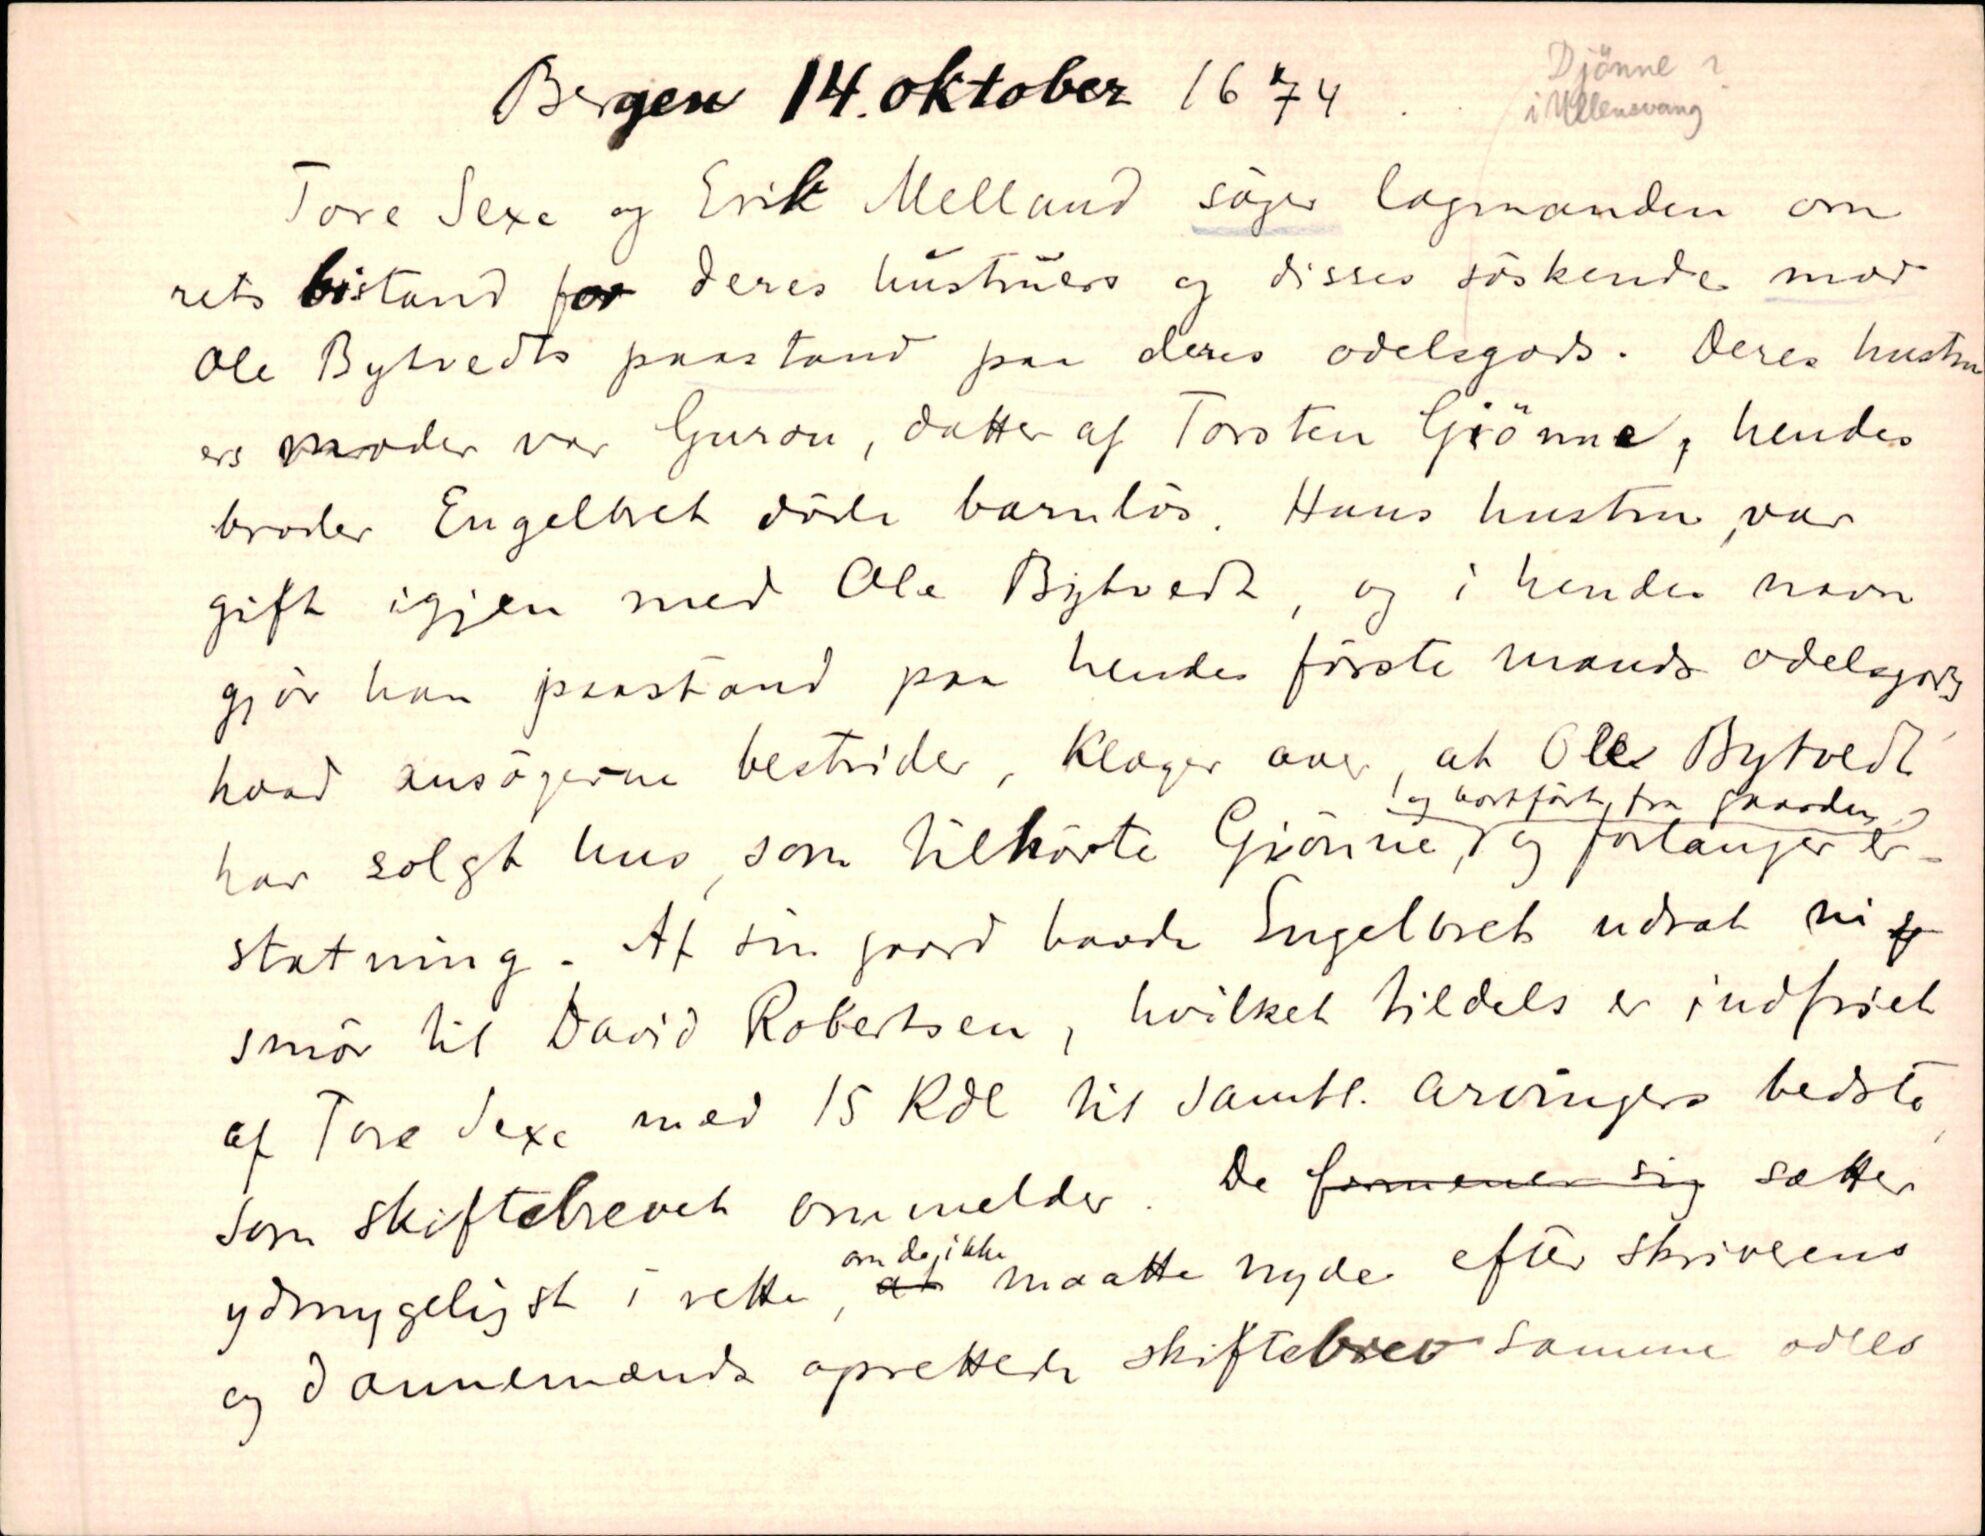 Bergen 14. oktober 1674.
Djönne i
i Ullensvang
Tore Sexe og Erik Melland söger lagmanden om
rets bistand for deres hustruers og disses söskende mod
Ole Bytvedts paastand paa deres odelsgods. Deres hustru
ers moder var Guron, datter af Torsten Giönne, hendes
broder Engelbret döde barnlös. Hans hustru var
gift igjen med Ole Bytvedt, og i hendes navn
gjör han paastand paa hendes förste mands odelsgods,
hvad ansögerne bestrider, klager over, at Ole Bytvedt
og bortfört fra gaarden,
har solgt hus, som tilhörte Giönne, og forlanger er-
statning. Af sin gaard havde Engelbret udsat ni
smör til David Robertsen, hvilket tildels er indfriet
af Tore Sexe med 15 Rdl til samtl. arvingers bedste,
som skiftebrevet ommelder. De formener sig sætter
om de ikke
ydmygeligst i rette, at maatte nyde efter skriverens
og dannemænds oprettede skiftebrev samme odels